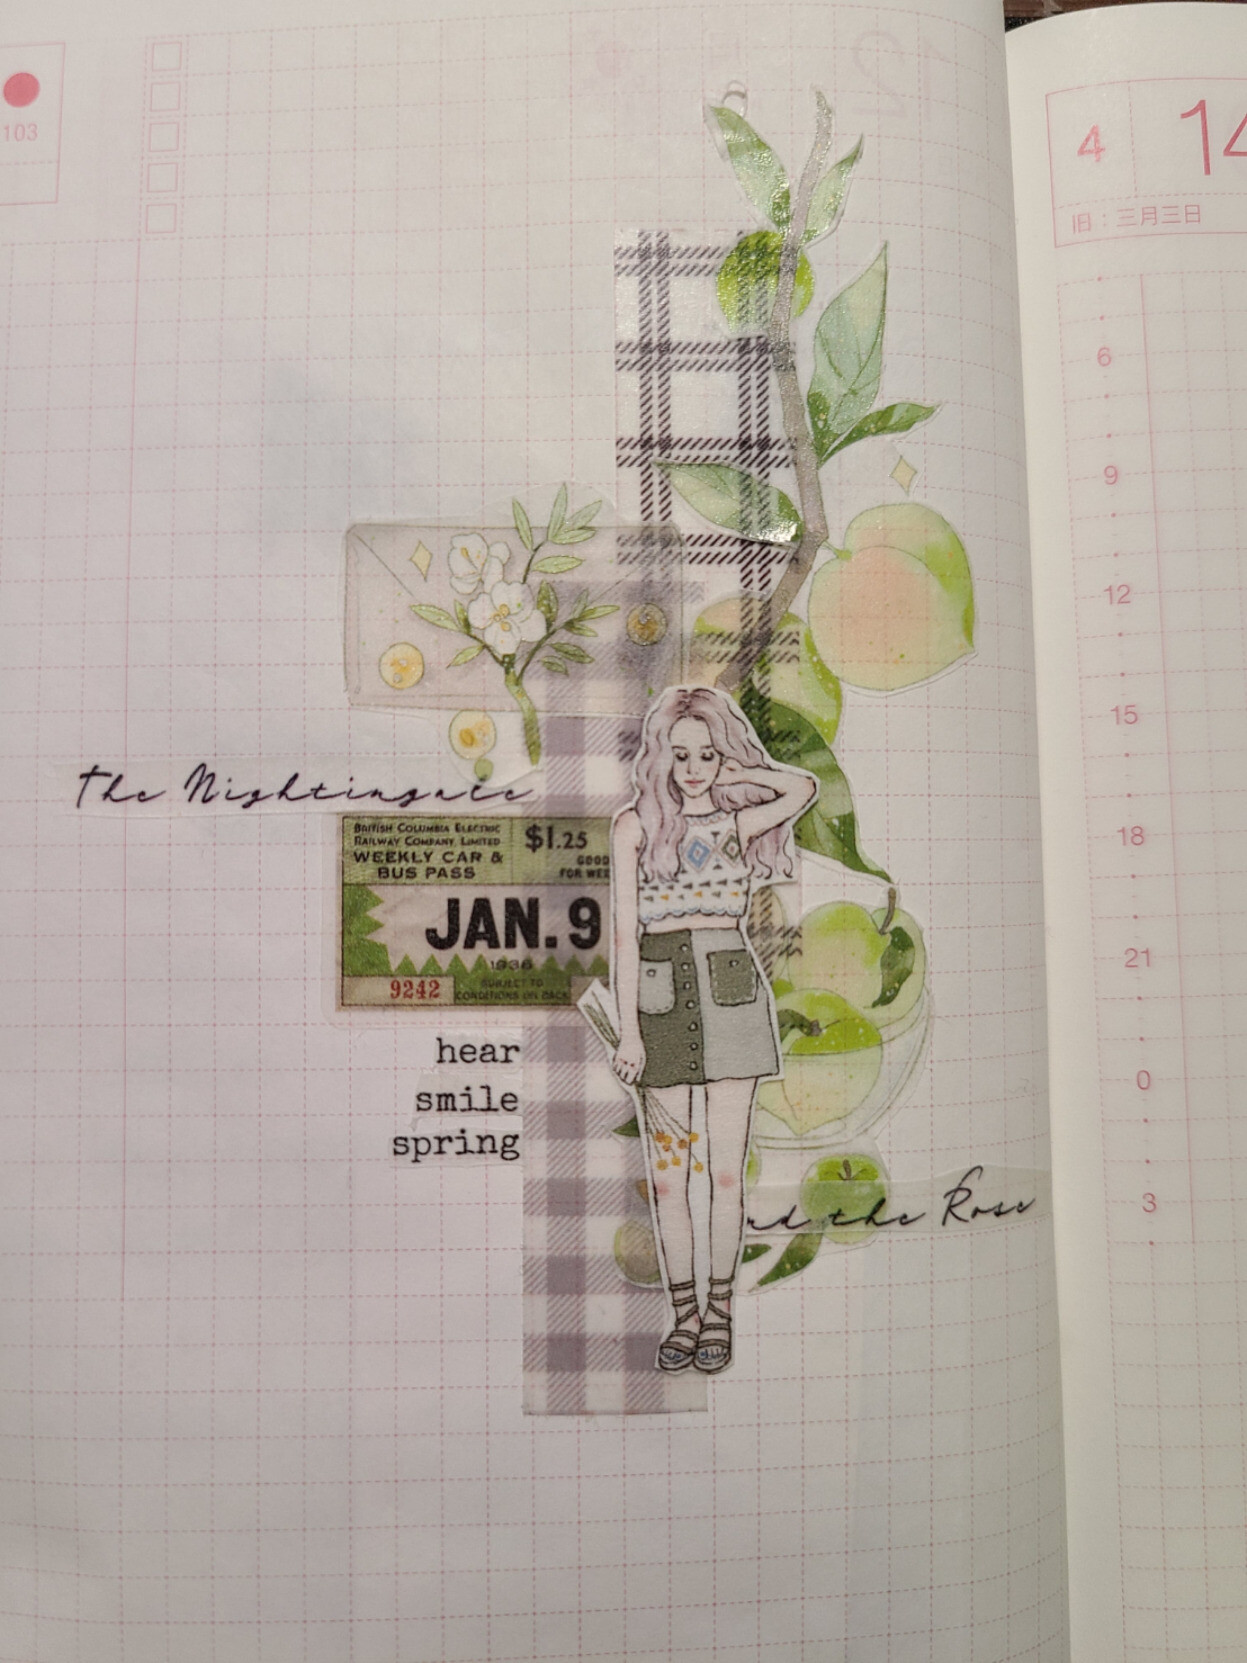 103
The Nightingale
BRITISH COLUMBIA ELECTRIC
RAILWAY COMPANY, LIMITED
WEEKLY CAR &
BUS PASS
$1.25
GOOD
FOR WEE
JAN. 9
1938
9242
SUBJECT TO
CONDITIONS ON BACK
hear
smile
spring
nd the Rose
4
14
旧:三月三日
6
9
12
15
18
21
0
3